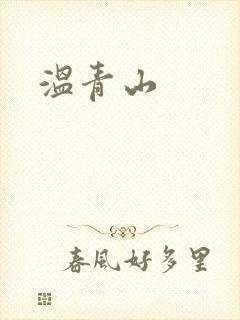 溫青山
春風好多里